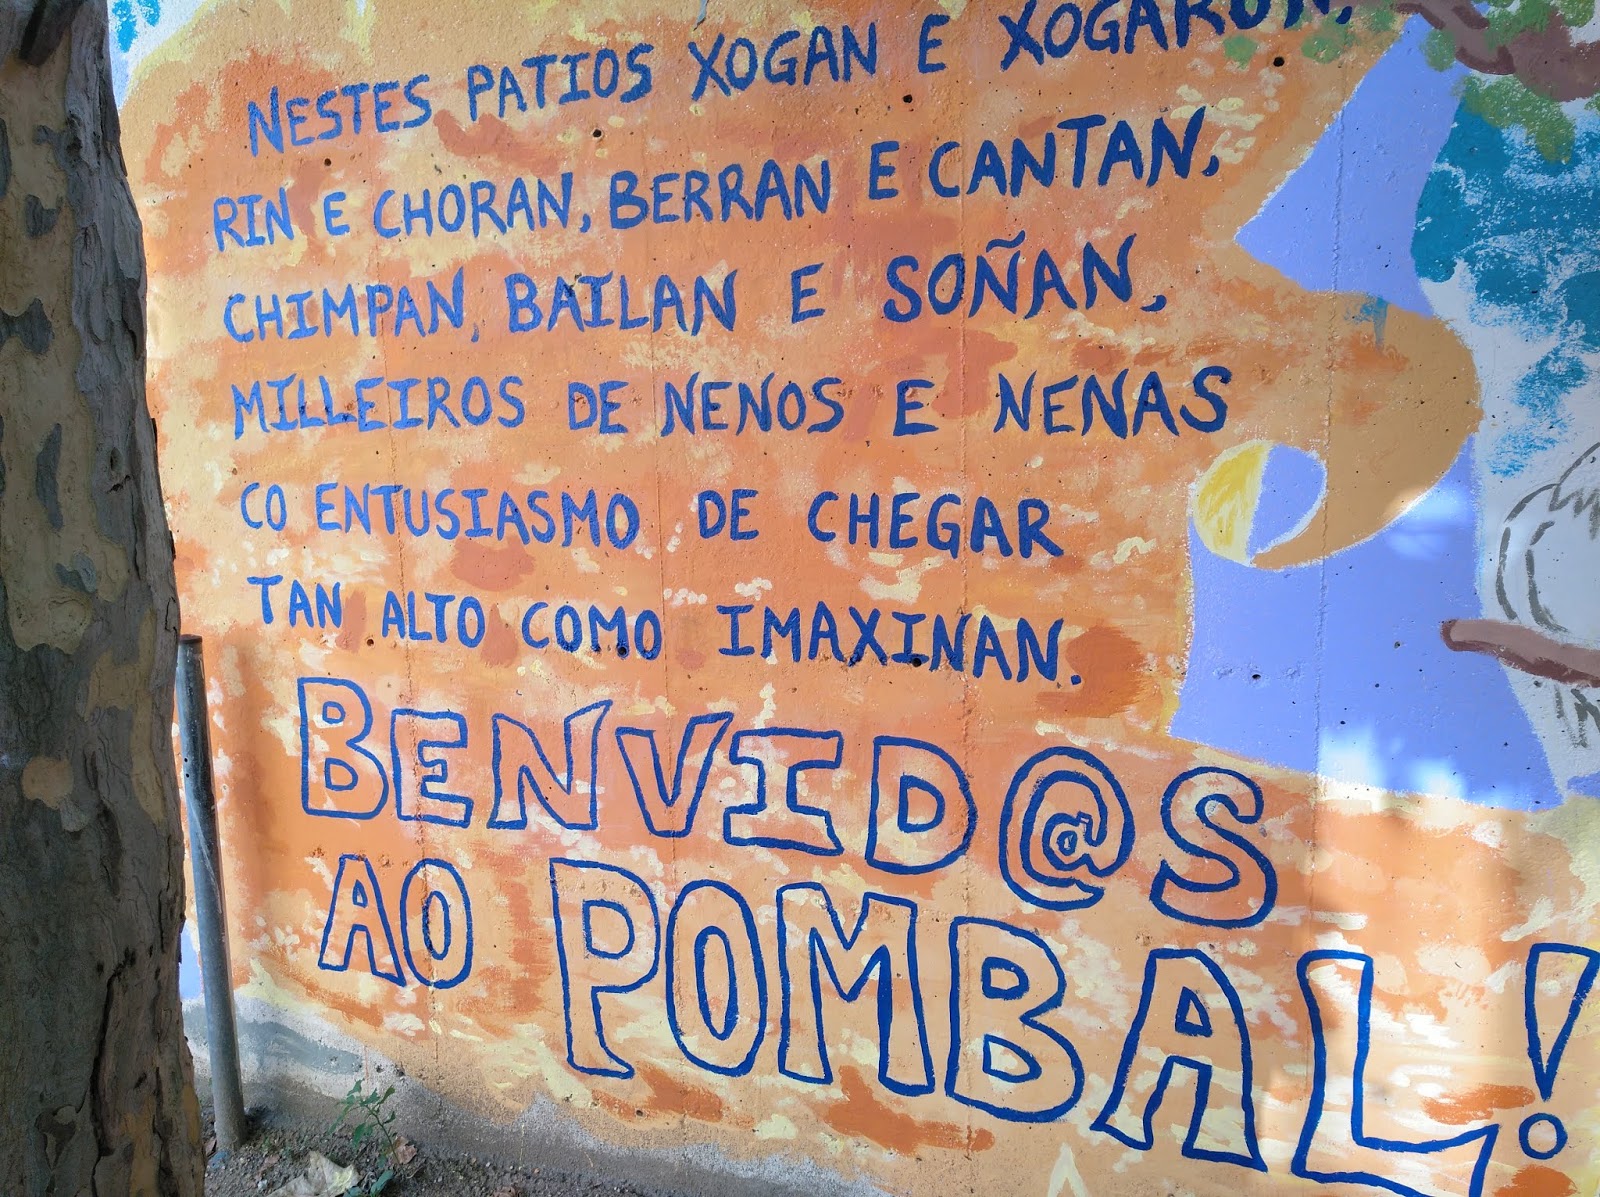 NESTES PATIOS XOGAN E XOGARON,
RIN E CHORAN, BERRAN E CANTAN,
CHIMPAN, BAILAN E SOÑAN,
MILLEIROS DE NENOS E NENAS
CO ENTUSIASMO DE CHEGAR
TAN ALTO COMO IMAXINAN.
BENVID@S
AO POMBAL!